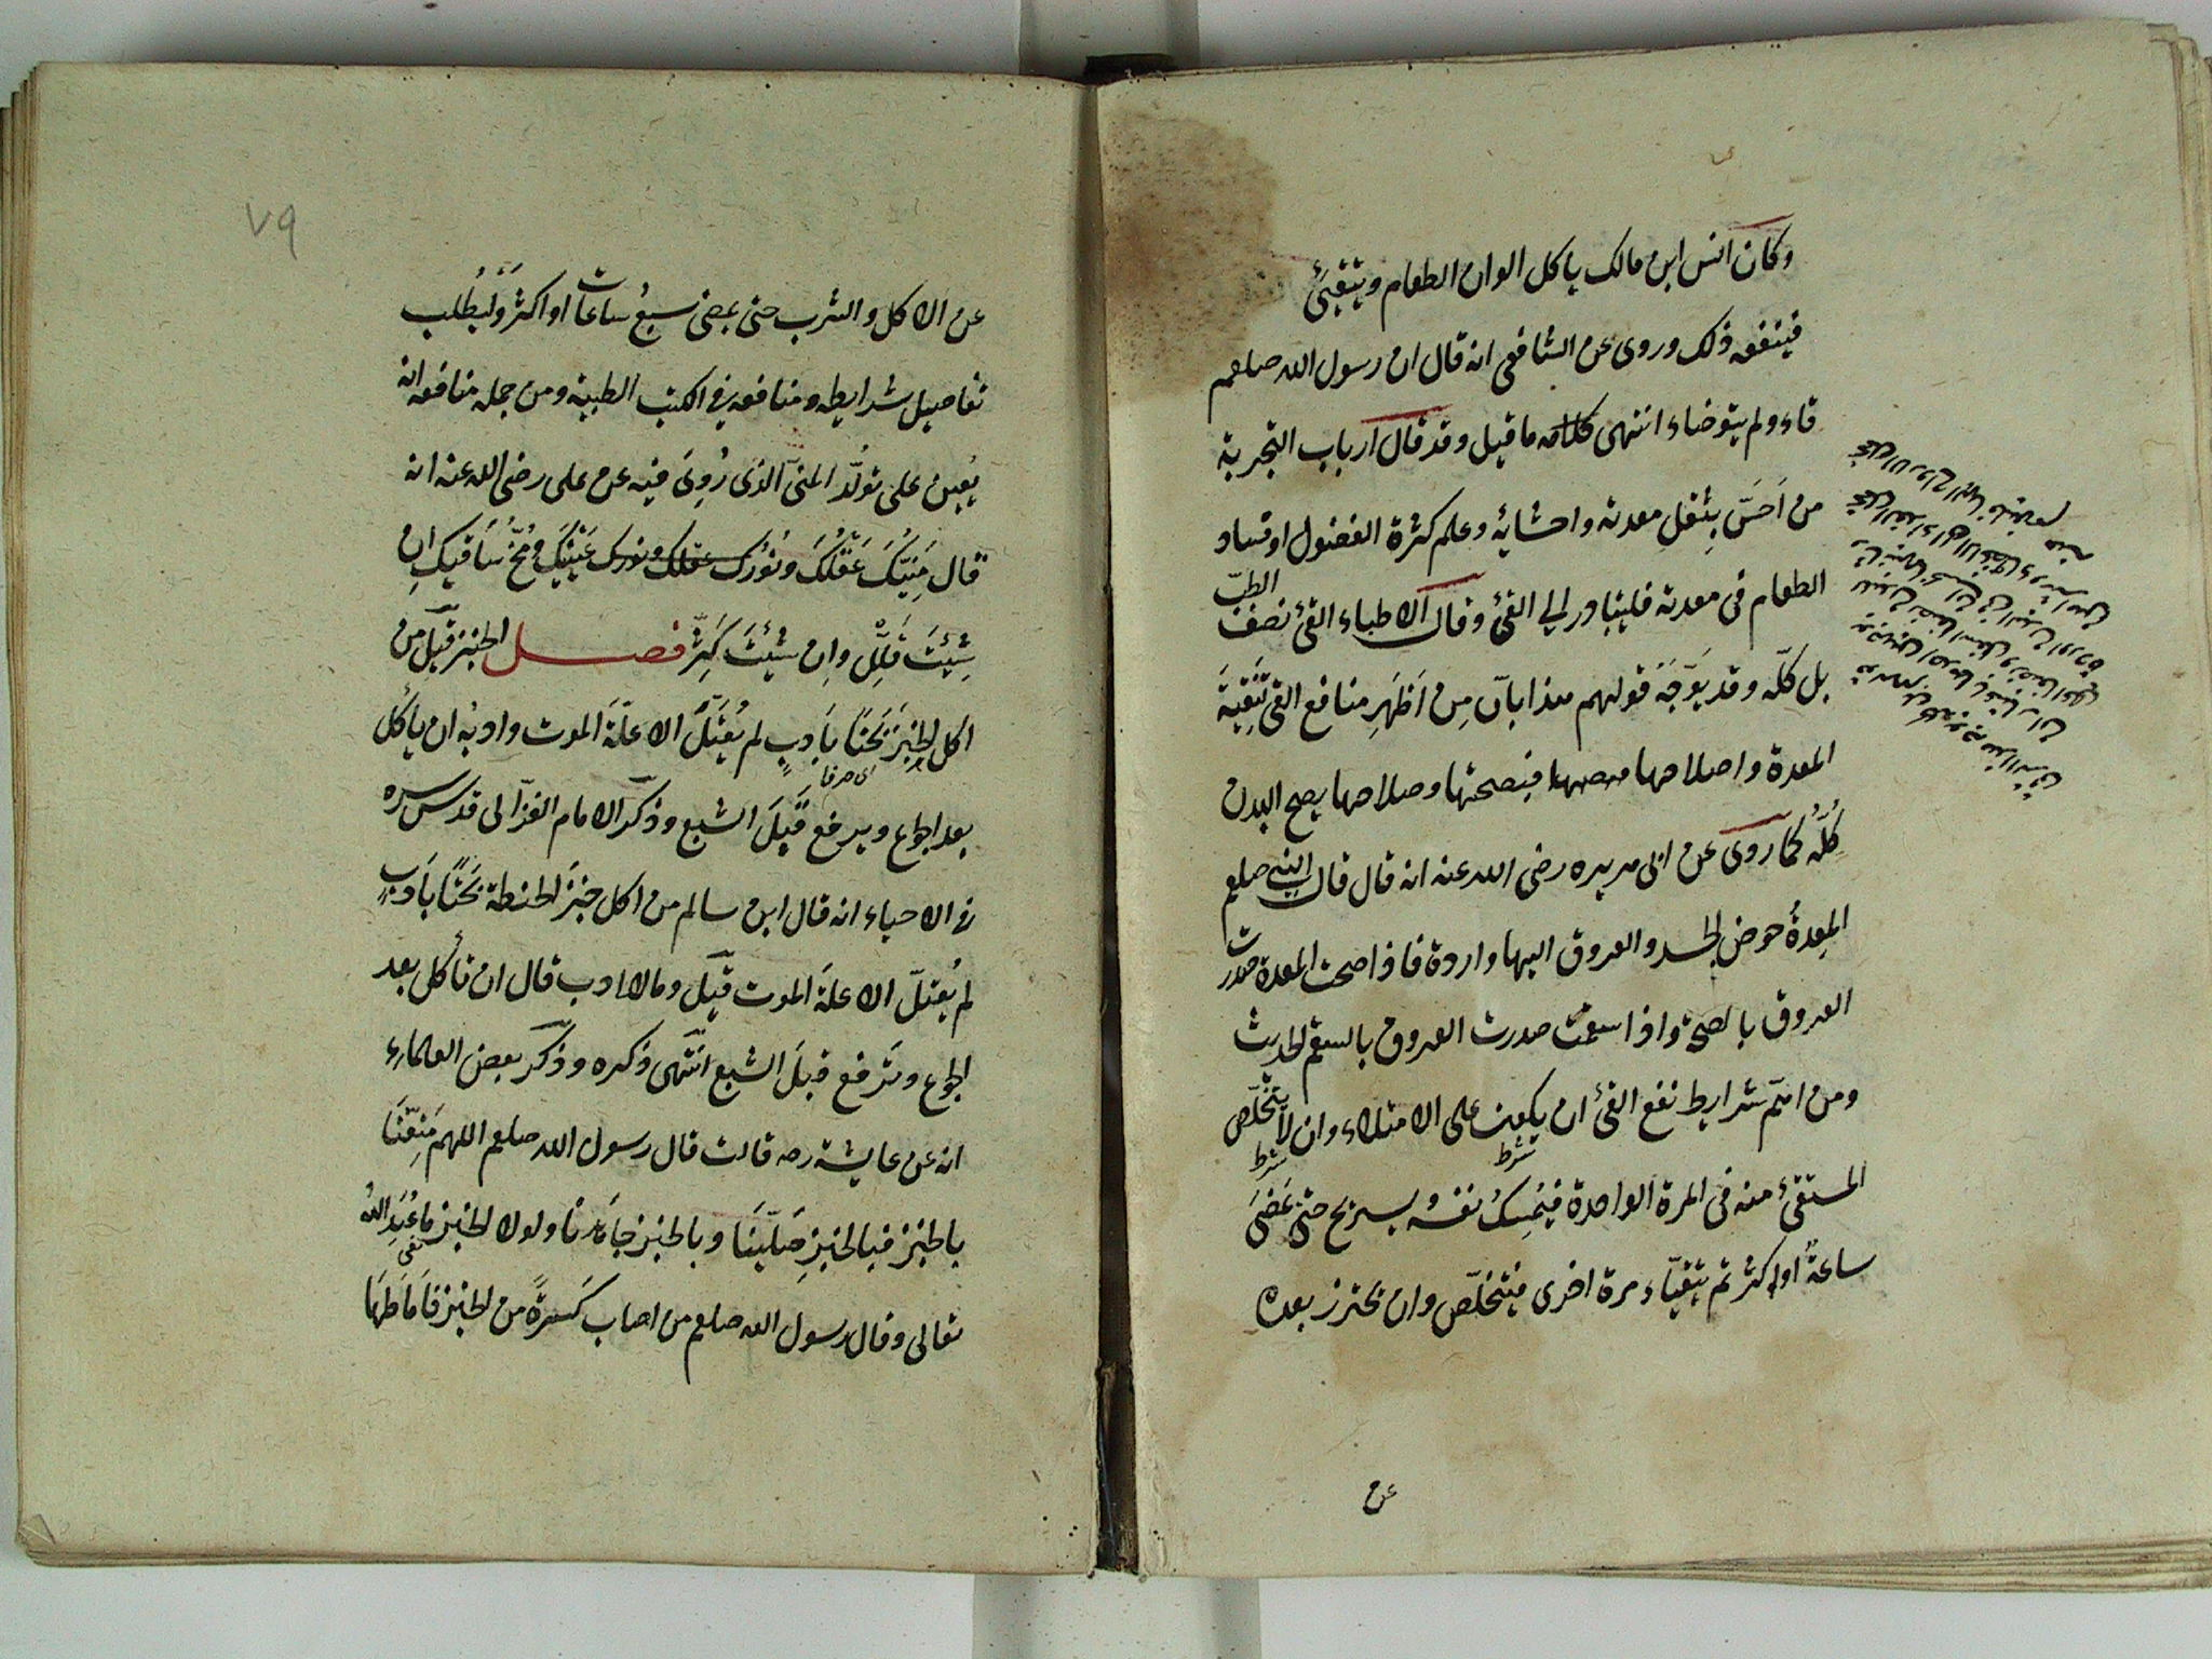 وكان انس ابن مالك ياكل الوان الطعام ويتقيئ
فينفعه ذلك وروى عن الشافعى انه قال ان رسول الله صلعم
قاء ولم يتوضاء انتهى كلامه ما قيل وقد قال ارباب التجربة
من اَحَسَّ بِثقلِ معدته واحشائه وعلم كثرة الفضول او فساد
الطعام فى معدته فليبادر الى القئ وقال الاطباء القئ نصف الطبّ
بل كلّه وقد يوَجّهُ قولهم هذا بانّ مِن اَظهَرِ منافع القئ تَنْقِيَةَ
المعدة واصلاحها فبصحتها وصلاحها يصح البدن
كُلّهُ كما روى عن ابى هريره رضى الله عنه انه قال قال النبى صلعم
المِعدةُ حوض الجسد والعروق اليها واردة فاذا صحت المعدة صدرت
العروق بالصحّة واذا سقمت صدرت العروق بالسقم الحديث
ومن اتمّ شرايط نفع القئ ان يكون على الامتلاء وان لا يتخلّص
شرط
شرط
المستقئ منه فى المرة الواحدة فيُمسِكُ نفسُه يستريح حتى تمضَىَ
ساعةٌ او اكثر ثم يتقيّاء مرة اخرى فيتخلّص وان يحترز بعده
عن
٧٩
عن الاكل والشرب حتى يمضى سبعُ ساعات او اكثرَ وليُطلب
تفاصيل شرايطه ومنافعه فى الكتب الطبية ومن جمله منافعه انه
يُعين على تولّد المنىّ الذى رُوِىَ فيه عن على رضى الله عنه انه
قال مَنِيُّكَ عَقْلُكَ ونُوْرُكَ عقلك ونورك عَيْنَيْكَ ومُخُّ سَاقَيك ان
شِئتَ قَلِّل وان شِئتَ كَثِّر فصل الخبز قيل من
اكل الخبزَ بَحْتًا بَاَدبٍ لم يُعْتَلَّ الا علّةَ الموت وادبُه ان ياكُل
اى صرفا
بعد الجوع ويرفع قبلَ الشبع وذكر الامام الغزّالى قدس سره
فى الاحياء انه قال ابن سالم من اكل خبزَ الحنطة بَحْتًا بَاَدبٍ
لم يُعتلّ الا علة الموت قيل وما الادب قال ان تأكل بعد
الجوع وتَرفع قبلَ الشبع انتهى ذكره وذكر بعض العلماء
انه عن عايشة رضه قالت قال رسول الله صلعم اللهم مَتِّعْنَا
بالخبز فبالخبزِ صَلَّينَا وبالخبز جاهدنا ولولا الخبز ما عُبِدَ اللهُ
تعالى وقال رسول الله صلعم من اصاب كسرةً من الخبز فَاَمَاطَهَا